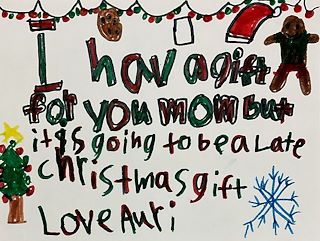 I hav a gift
for you mom but
it is going to be a Late
christmas gift
LOVE Auri